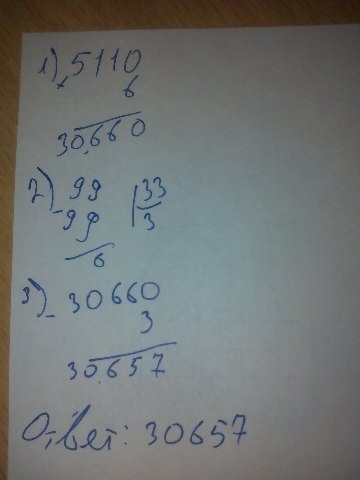 1) × 5110
6
30.660
2) - 99 | 33
99 | 3
6
3) - 30660
3
30.657
Ответ: 30657